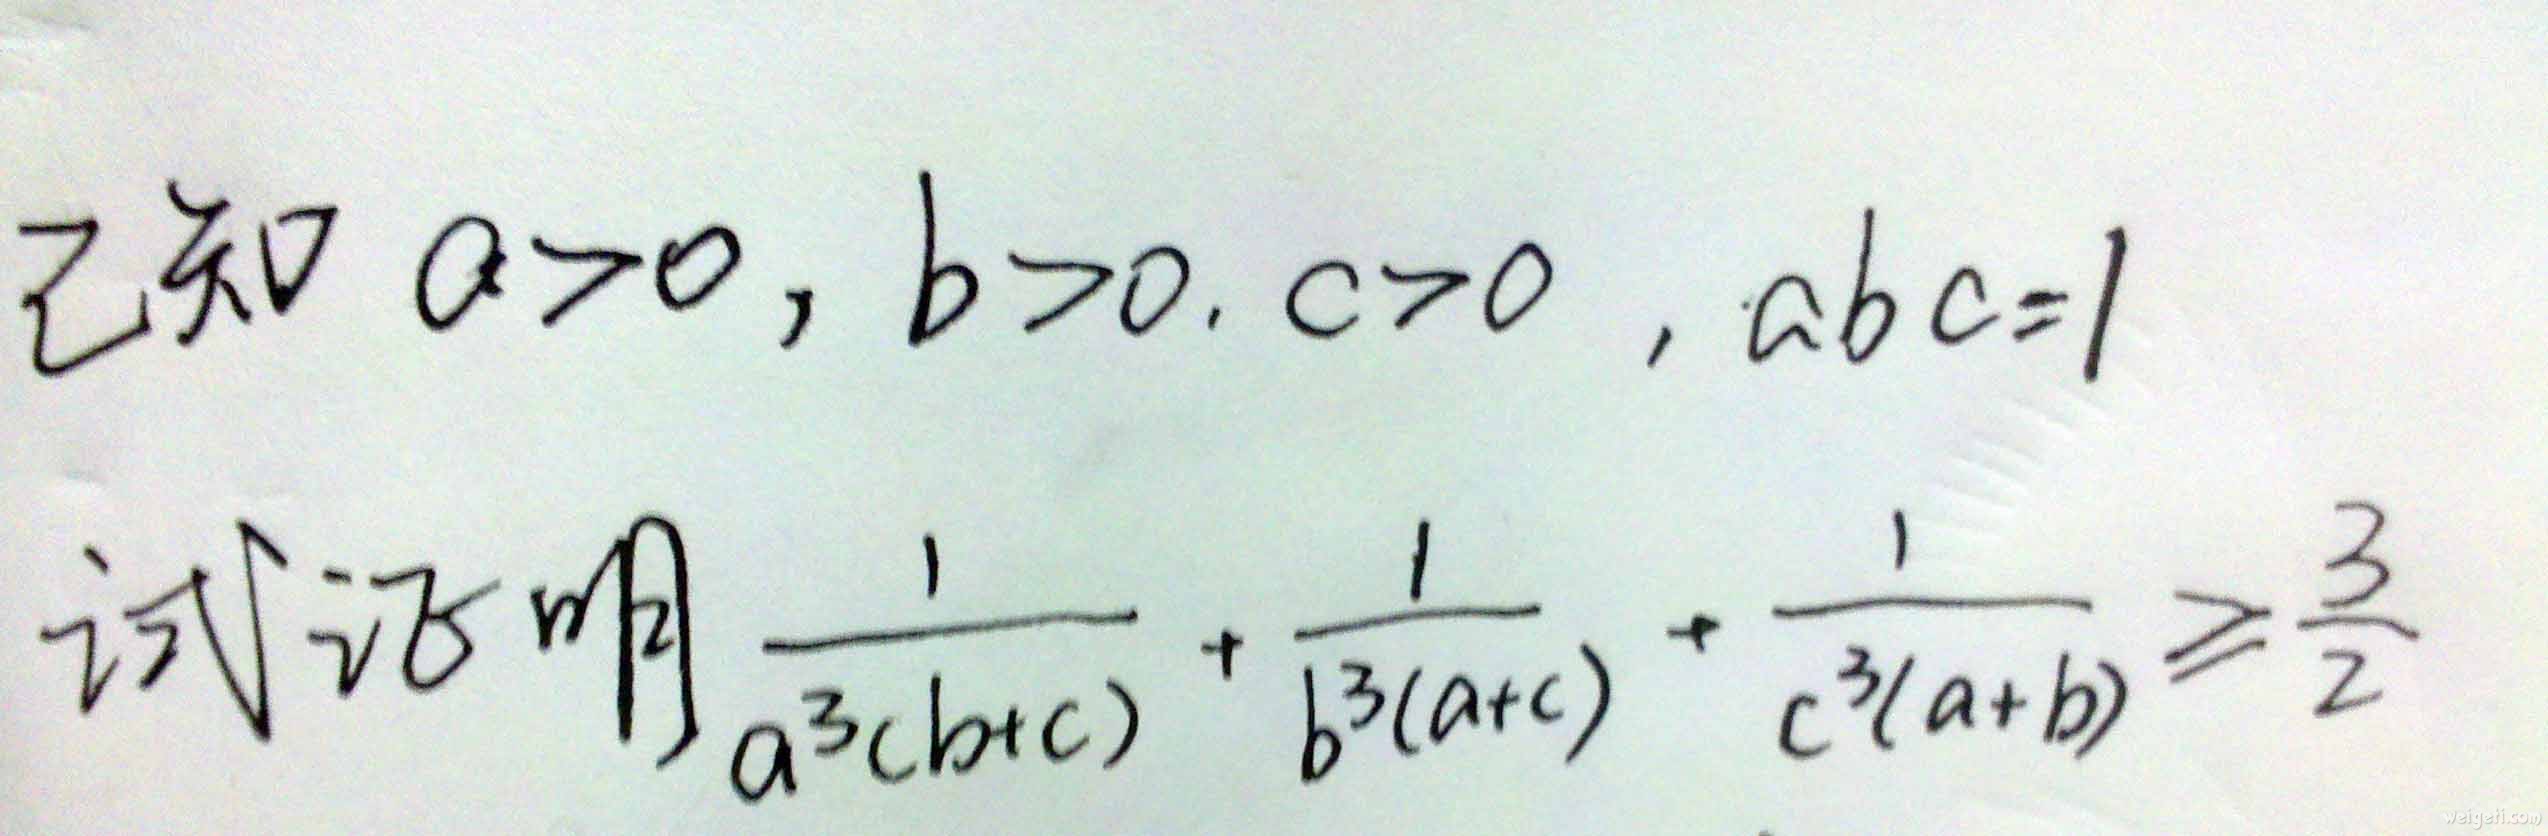 已知 a>0, b>0, c>0, abc=1
试证明 \frac{1}{a^3(b+c)} + \frac{1}{b^3(a+c)} + \frac{1}{c^3(a+b)} ≥ \frac{3}{2}
weigefi.com